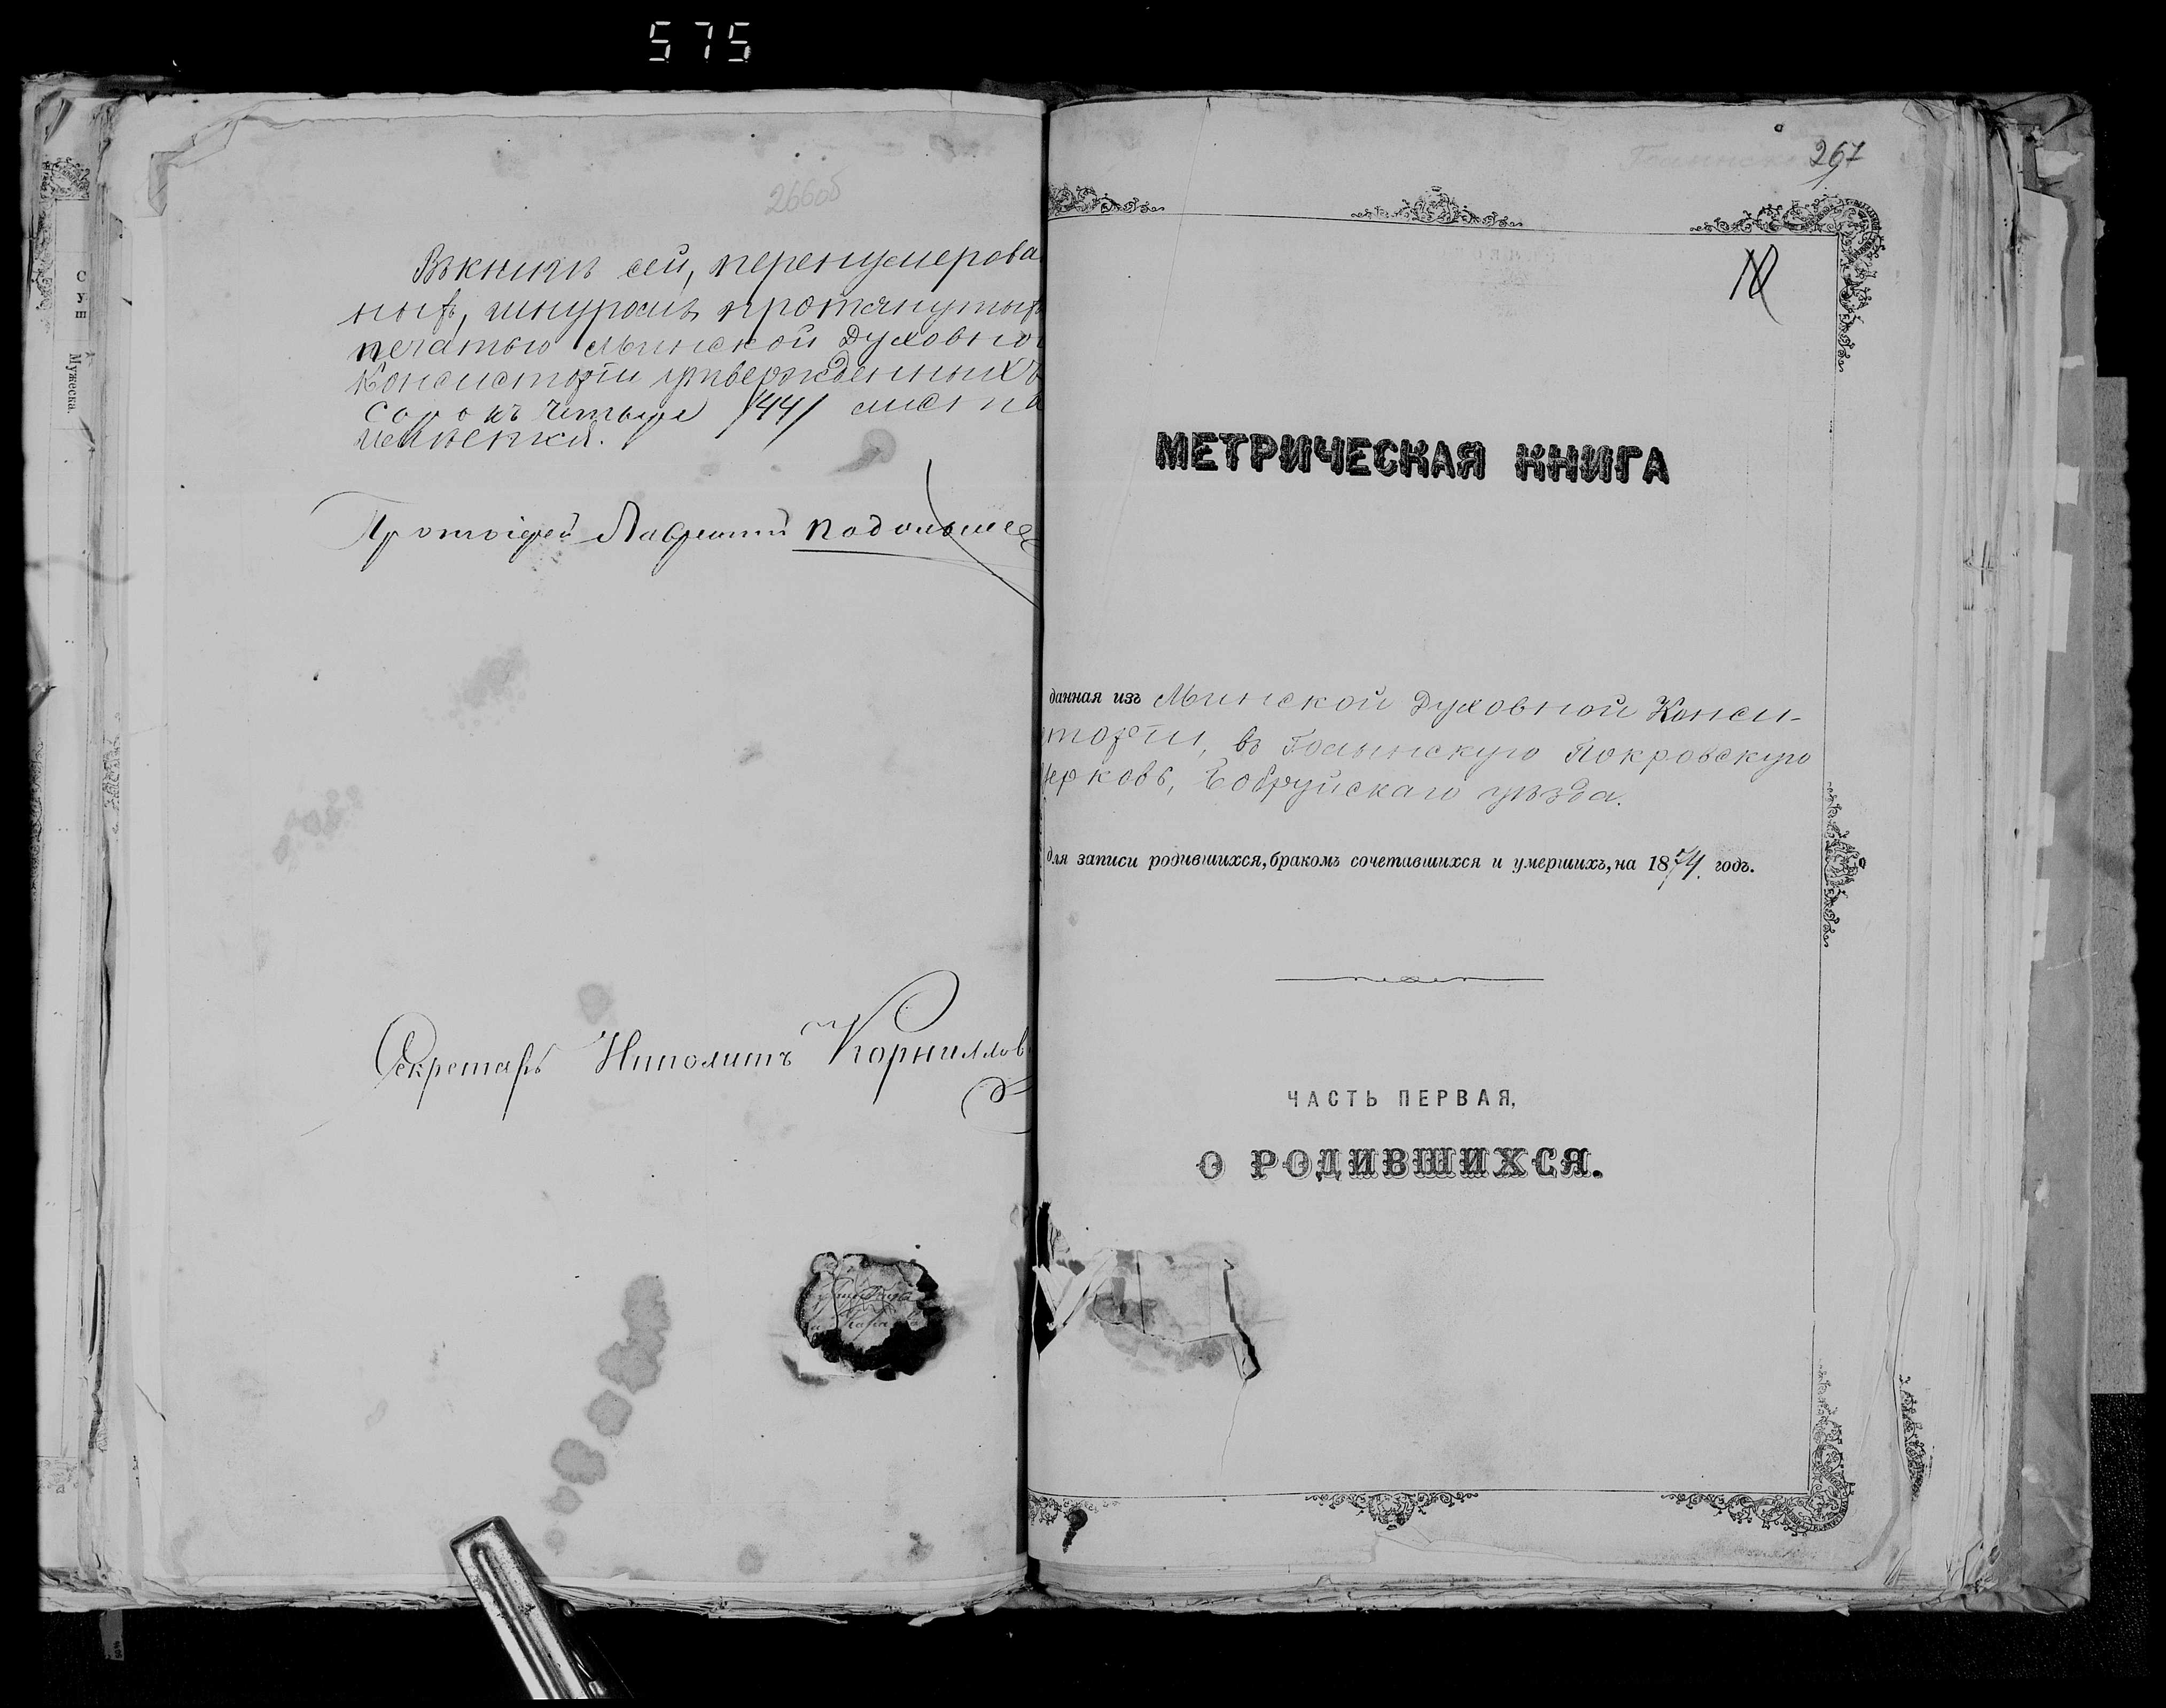 575
266об
Въ книгѣ сей, перенумерова
ныхъ, шнуромъ протянутыхъ
печатью Минской Духовно
Консисторіи утвержденныхъ
сорокъ четыре /44/ листа
Протоіерей Лаврентій Подольск
Секретарь Ипполитъ Корниллов
Мужеска.
267
МЕТРИЧЕСКАЯ КНИГА
данная изъ Минской Духовной Конси-
торіи, въ Голынскую Покровскую
церковь, Бобруйскаго уѣзда.
для записи родившихся, бракомъ сочетавшихся и умершихъ, на 1874. годъ.
ЧАСТЬ ПЕРВАЯ,
О РОДИВШИХСЯ.